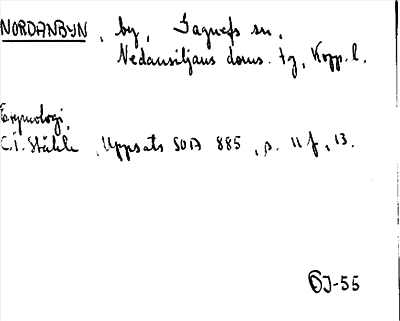 NORDANBYN, by, Gagnefs sn,
Nedansiljans doms. tg, Kopp. l.
Etymologi,
C.I. Ståhle, Uppsats SOA 885, s. 11 f, 13.
OJ-55